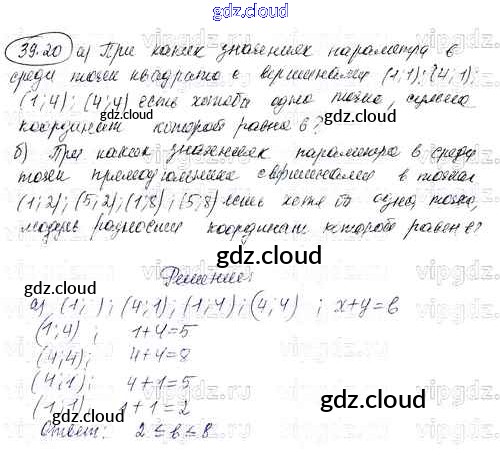 gdz.cloud
39.20 а) При каких значениях параметра в
среди точек квадрата с вершинами (1;1); (4;1);
(1;4); (4;4) есть хотя бы одна точка, сумма
координат которой равна в?
б) При каких значениях параметра в среди
точек прямоугольника с вершинами в точках
(1;2); (5;2); (1;8); (5;8) есть хотя бы одна точка,
модуль разности координат которой равен в?
Решение:
а) (1; ); (4;1); (1;4); (4;4) ; x+y=в
(1;4) ; 1+4=5
(4;4); 4+4=8
(4;1); 4+1=5
(1;1) 1+1=2
Ответ: 2 ≤ в ≤ 8
gdz.cloud
gdz.cloud
gdz.cloud
gdz.cloud
gdz.cloud
gdz.cloud